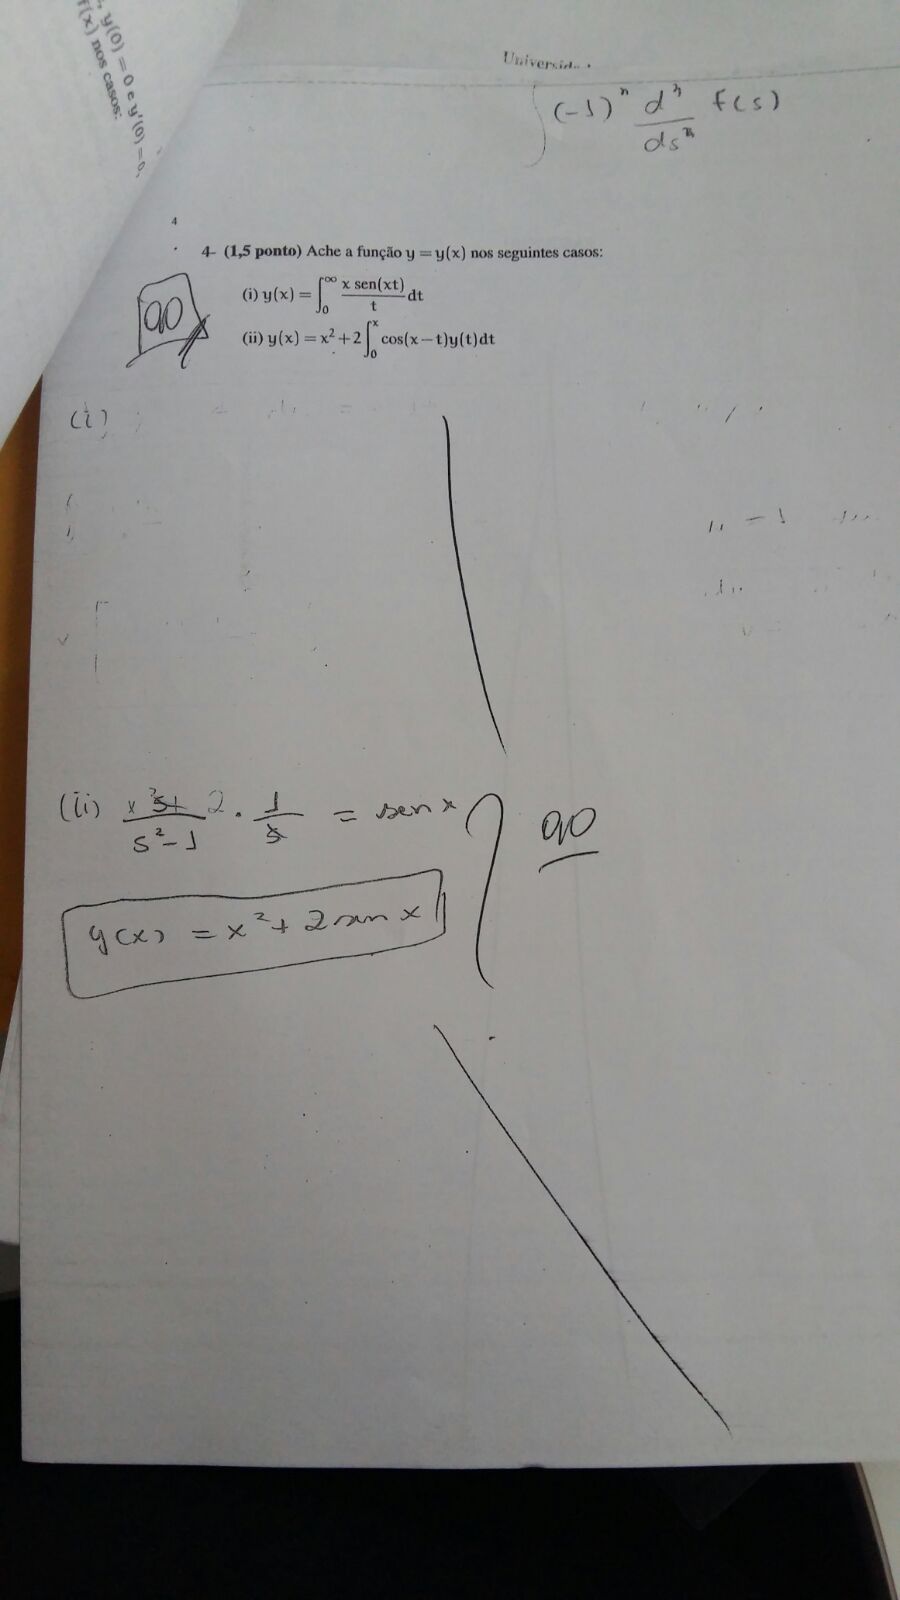 y(0) = 0 e y'(0) = 0,
f(x) nos casos:
(-1)^n d^n/ds^n F(s)
4
4- (1,5 ponto) Ache a função y = y(x) nos seguintes casos:
0,0
(i) y(x) = ∫₀^∞ x sen(xt)/t dt
(ii) y(x) = x² + 2∫₀^x cos(x − t)y(t)dt
(i)
(ii) = sen x
0,0
y(x) = x² + 2 sen x